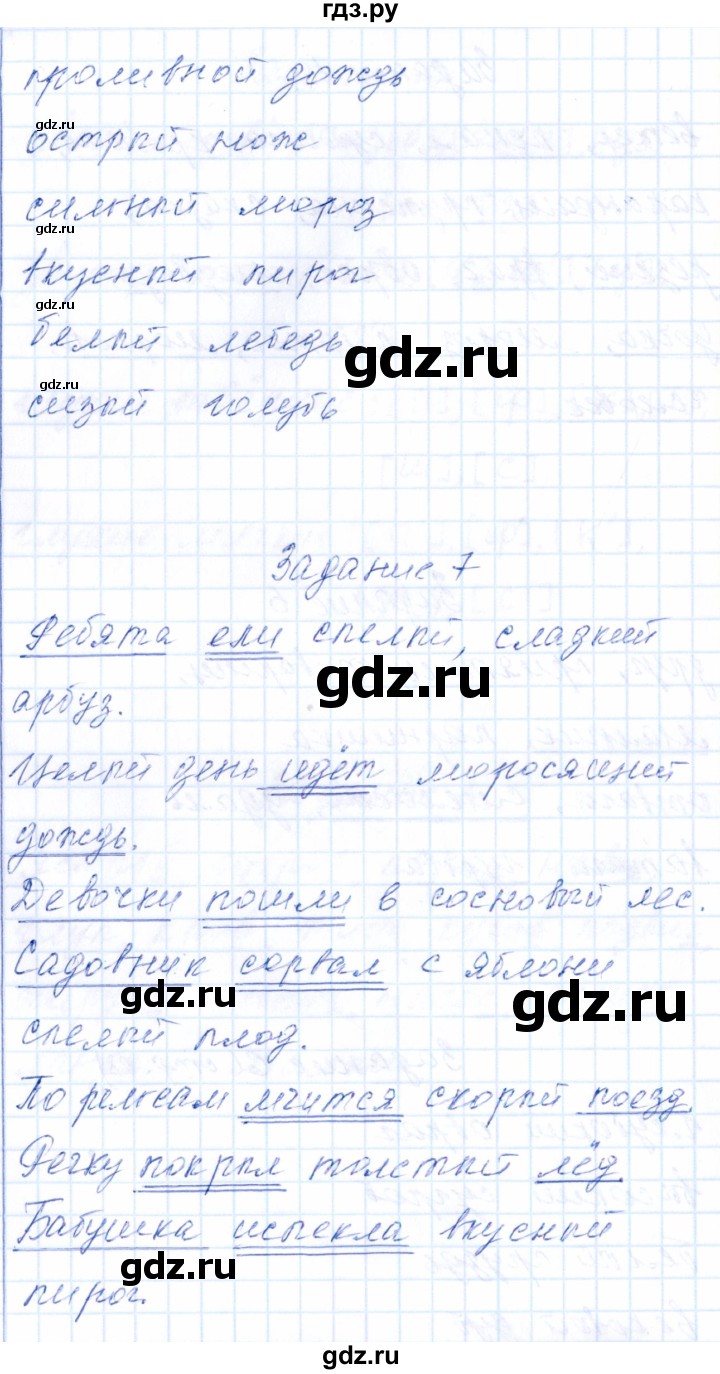 гдз.ру
проливной дождь
gdz.ru
острый нож
сильный мороз
gdz.ru
вкусный пирог
gdz.ru
белый лебедь
gdz.ru
gdz.ru
сизый голубь
Задание 7
Ребята ели спелый, сладкий
gdz.ru
арбуз.
Целый день идёт моросящий
дождь.
Девочки пошли в сосновый лес.
Садовник сорвал с яблони
gdz.ru
gdz.ru
спелый плод.
По рельсам мчится скорый поезд.
Речку покрыл толстый лёд.
Бабушка испекла вкусный
gdz.ru
пирог.
gdz.ru